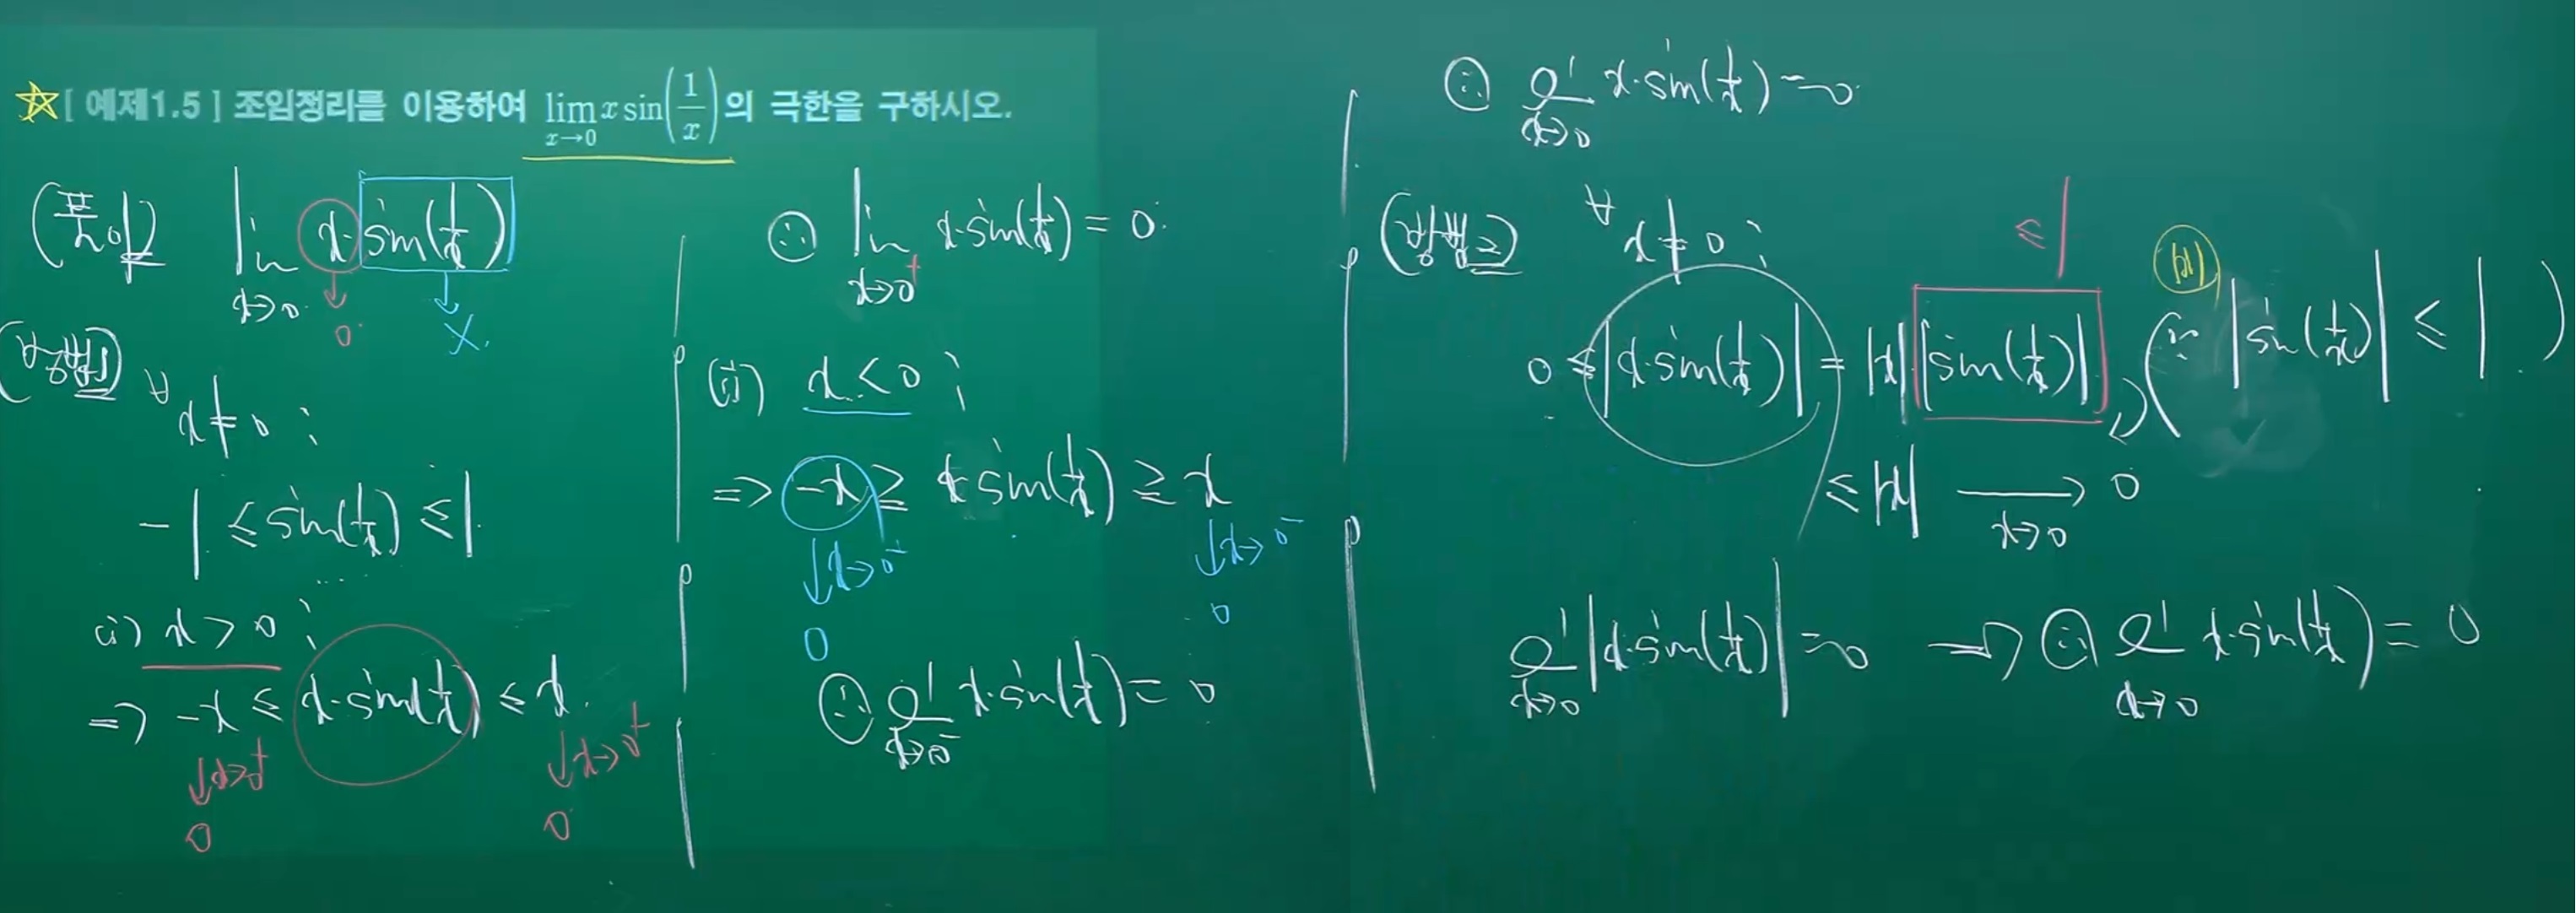 ☆[ 예제1.5 ] 조임정리를 이용하여 lim x→0 x sin(1/x)의 극한을 구하시오.
(풀이) lim x→0 x·sin(1/x)
0 X
(방법1)
∀x≠0 ;
-1 ≤ sin(1/x) ≤ 1
(i) x > 0 ;
=> -x ≤ x·sin(1/x) ≤ x
↓x→0⁺ ↓x→0⁺
0 0
∴ lim x→0⁺ x·sin(1/x) = 0
(ii) x < 0 ;
=> -x ≥ x·sin(1/x) ≥ x
↓x→0⁻ ↓x→0⁻
0 0
∴ lim x→0⁻ x·sin(1/x) = 0
∴ lim x→0 x·sin(1/x) = 0
(방법2) ∀x≠0 ;
≤ 1
0 ≤ |x·sin(1/x)| = |x| |sin(1/x)| (∵ |sin(1/x)| ≤ 1)
≤ |x| → 0
x→0
lim x→0 |x·sin(1/x)| = 0 → ∴ lim x→0 x·sin(1/x) = 0